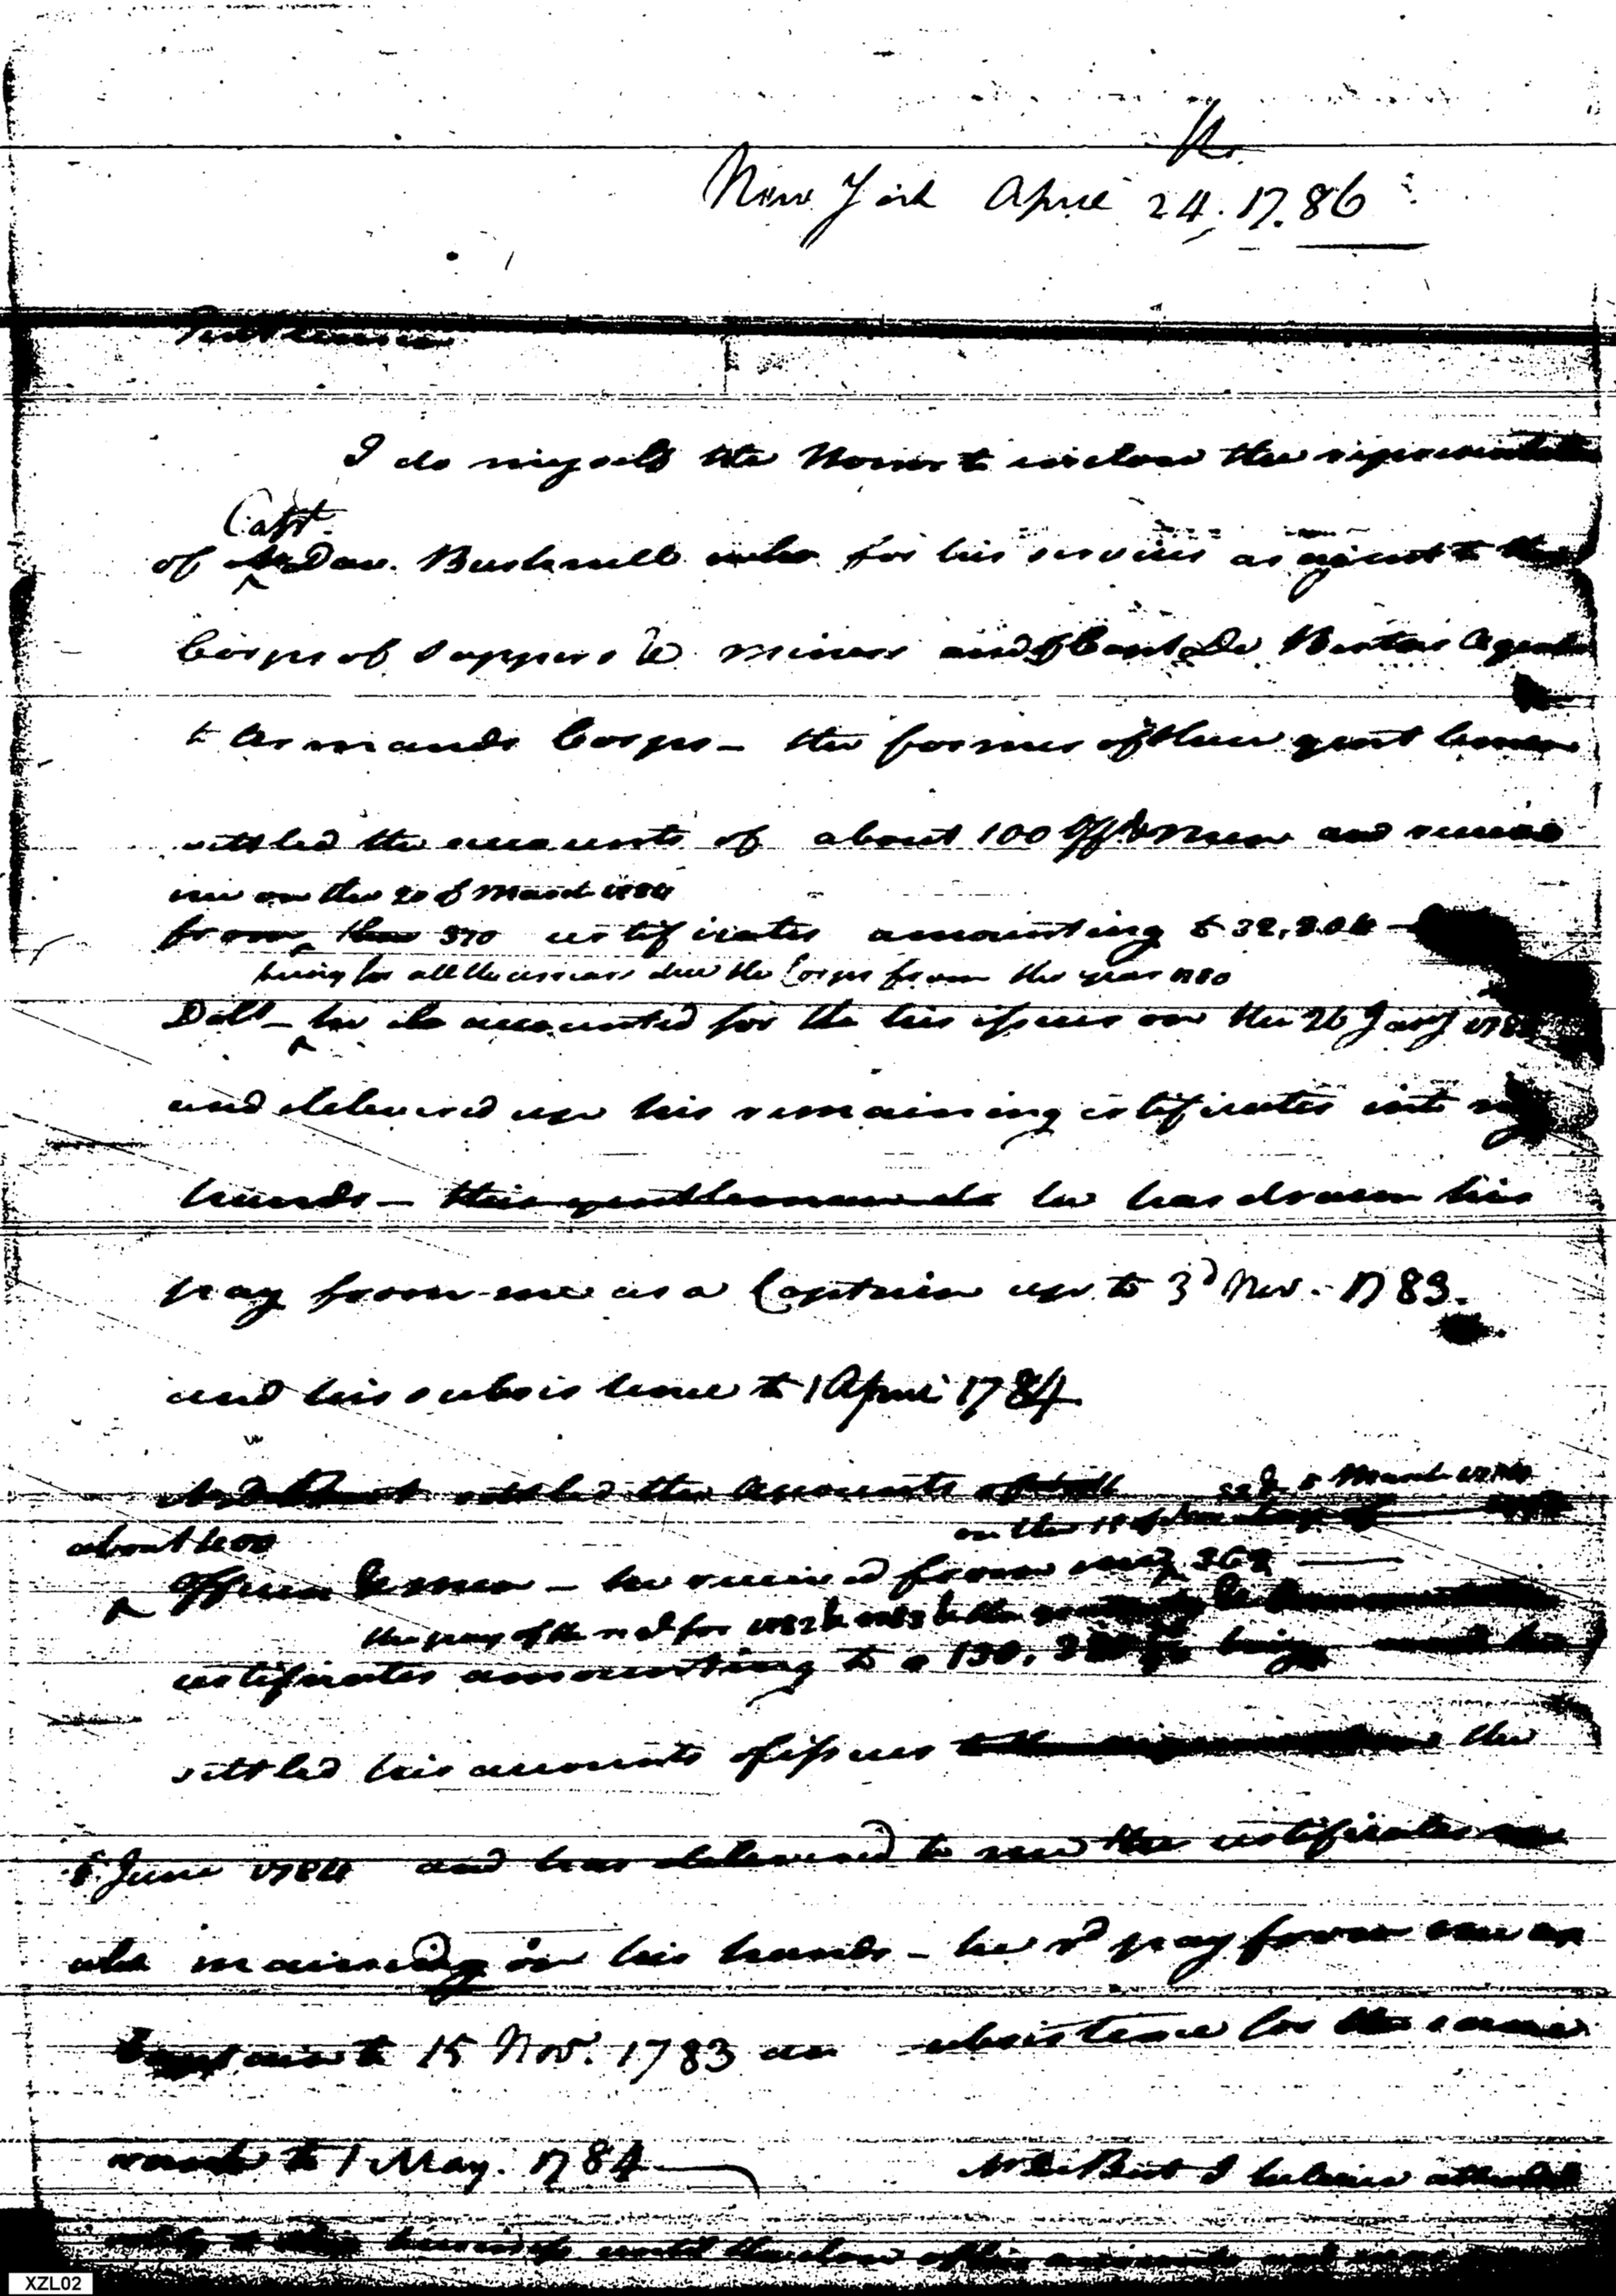 New York April 24. 1786
Gentlemen
I do myself the Honor to inclose the representation
Capt.
of Mr Dav. Bushnell who for his services as agent to the
Corps of Sappers & miners and of Capt De Bert as Agent
to Armands Corps — the former of these gentlemen
settled the accounts of about 100 Off. & men and received
me on the 20 of March 1784
from then 370 certificates amounting to 32,204
being for all the arrears due the Corps from the year 1780
Doll — he also accounted for the his issues on the 26 Jany
and delivered up his remaining certificates into my
hands — this gentleman also he has drawn his
pay from me as a Captain up to 3d Nov. 1783.
and his subsistence to 1 April 1784
settled the Accounts of March
about on the
Officers & men — he received from me 369
the pay of the for 1782 & 1783
certificates amounting to a 130, being
settled his accounts of issues the
5 June 1784 and has delivered to me the certificates
remaining in his hands — he rd pay from me as
Captain to 15 Nov. 1783 an subsistence for the same
to 1 May. 1784 Mr De Bert I believe attended
to this business until the close of his accounts and
XZL02